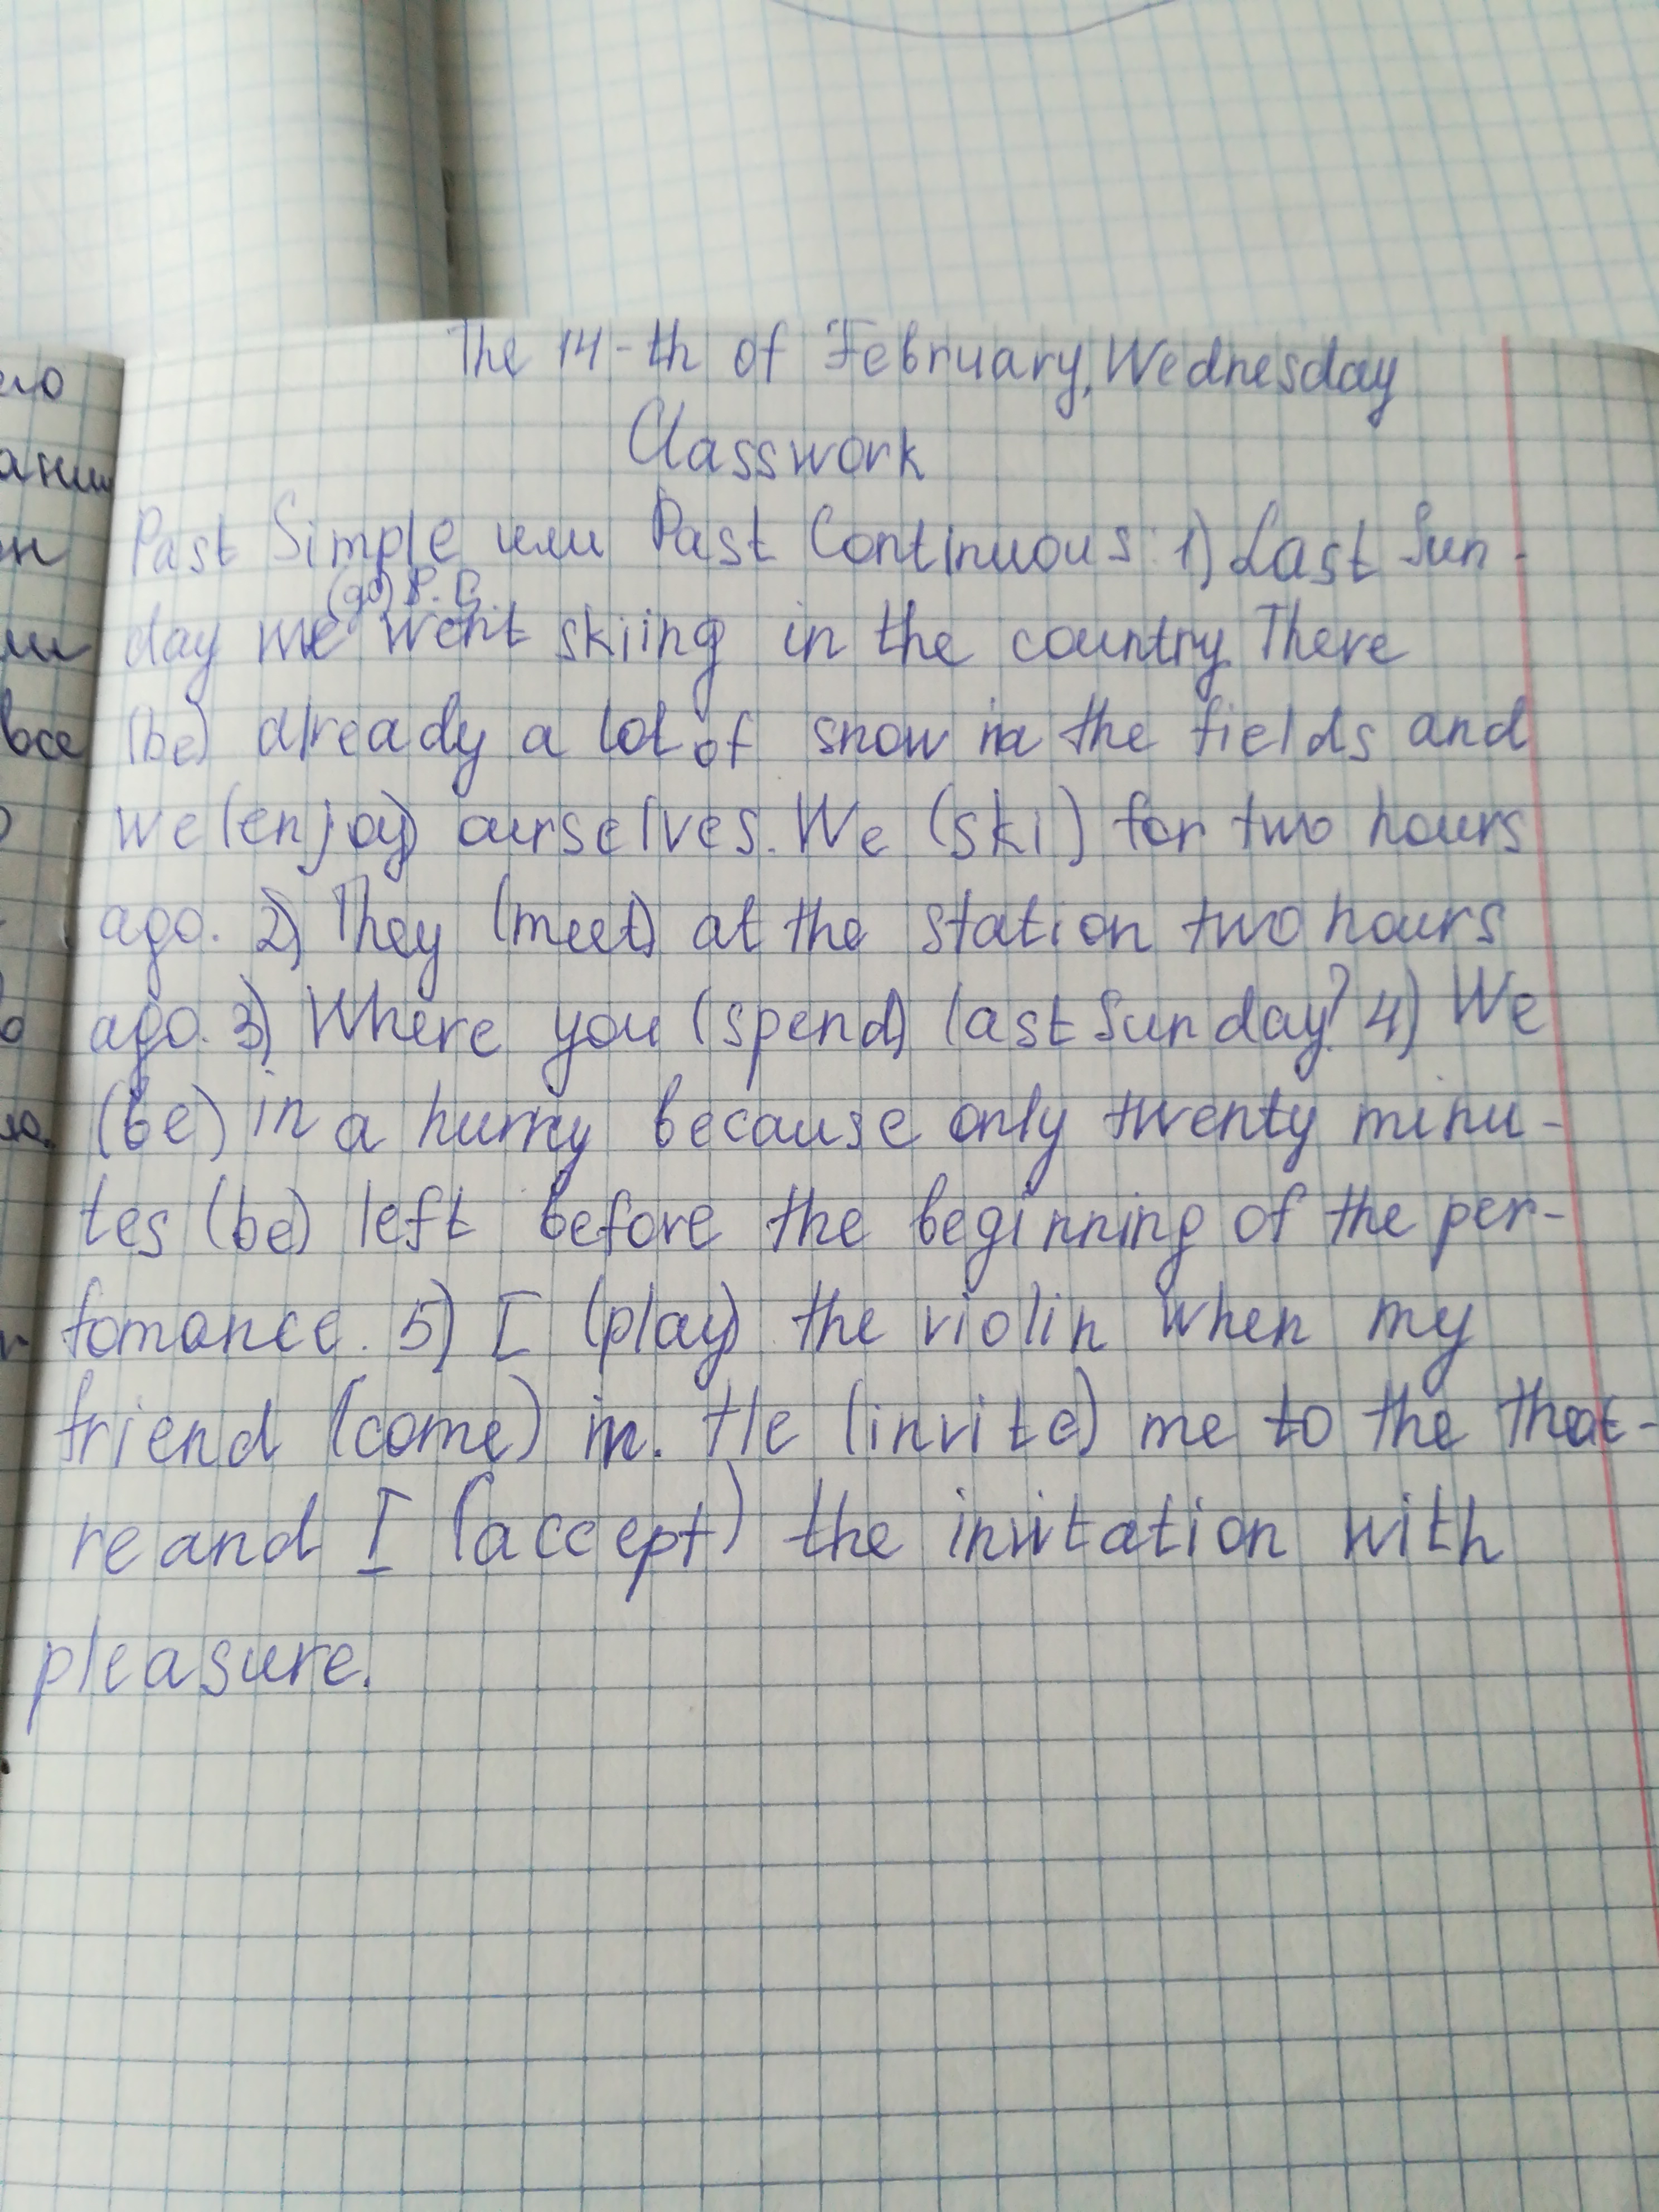 The 14-th of February, Wednesday
Classwork
Past Simple или Past Continuous: 1) Last Sun-
(go)
day we went skiing in the country. There
(be) already a lot of snow in the fields and
we (enjoy) ourselves. We (ski) for two hours
ago. 2) They (meet) at the station two hours
ago. 3) Where you (spend) last Sunday? 4) We
(be) in a hurry because only twenty minu-
tes (be) left before the beginning of the per-
fomance. 5) I (play) the violin when my
friend (come) in. He (invite) me to the theat-
re and I (accept) the invitation with
pleasure.